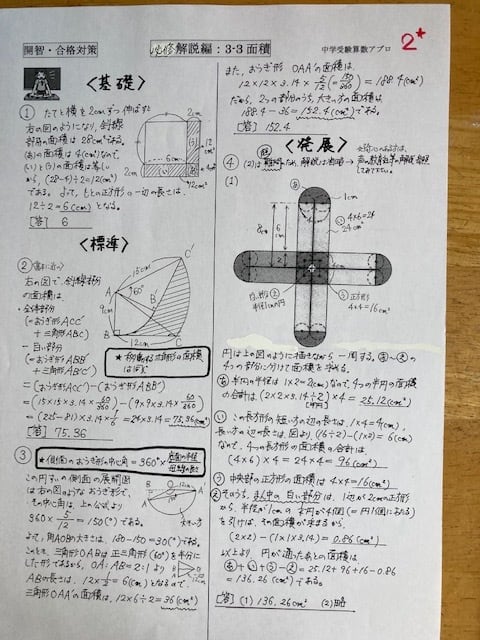 開智・合格対策
必修解説編：3-3 面積
中学受験算数アプロ
2*
〈基礎〉
① たてと横を2cmずつ伸ばすと
右の図のようになり、斜線
部分の面積は28cm²である。
(あ)の面積は4(cm²)なので、
(い)と(う)の面積は等しい
から、(28-4)÷2=12(cm²)
である。よって、もとの正方形の一辺の長さは、
12÷2=6(cm)となる。
[答] 6
2cm
2cm
〈標準〉
②
右の図で、斜線部分
の面積は、
全体部分
(=おうぎ形ACC'
+三角形ABC)
- 白い部分
(=おうぎ形ABB'
+三角形AB'C')
=(おうぎ形ACC')-(おうぎ形ABB')
=(15×15×3.14×60/360)-(9×9×3.14×60/360)
=(225-81)×3.14×1/6=24×3.14=75.36(cm²)
[答] 75.36
15cm
9cm
A
B
C
B'
C'
③
★側面のおうぎ形の中心角=360°×底面の半径/母線の長さ
この円すいの側面の展開図
は右の図のようなおうぎ形で、
その中心角は、上の公式より
360×5/12=150(°)である。
よって、角AOBの大きさは、180-150=30(°)である。
このとき、三角形OABは正三角形(60°)を半分に
した形であるから、OA:AB=2:1より
ABの長さは、12×1/2=6(cm)となるので、
三角形OAA'の面積は、12×6÷2=36(cm²)
12cm
大きい方
また、おうぎ形OAA'の面積は、
12×12×3.14×5/12(=150/360)=188.4(cm²)
だから、2つの部分のうち、大きい方の面積は
188.4-36=152.4(cm²)である。
[答] 152.4
〈発展〉
④
(1)
1cm
8cm
6cm
4×6=24
24cm²
正方形
4×4=16(cm²)
円は上の図のようにえがきながら一周する。
4つの部分に分けて面積を求める。
半円の半径は1×2=2(cm)なので、4つの半円の面積
の合計は(2×2×3.14÷2)×4=25.12(cm²)
この長方形の短い方の辺の長さは、1×4=4(cm)、
長い方の辺の長さは、図より、(16÷2)-(1×2)=6(cm)
なので、4つの長方形の面積の合計は、
(4×6)×4=24×4=96(cm²)
中央部の正方形の面積は4×4=16(cm²)
そのうち、まん中の白い部分は、1辺が2cmの正方形
から、半径が1cmの1/4円が4個(=円1個にあたる)
を引けば、その面積が求まるから、
(2×2)-(1×1×3.14)=0.86(cm²)
以上より、円が通ったあとの面積は
あ+い+う-え=25.12+96+16-0.86
=136.26(cm²)である。
[答] (1) 136.26cm² (2)略